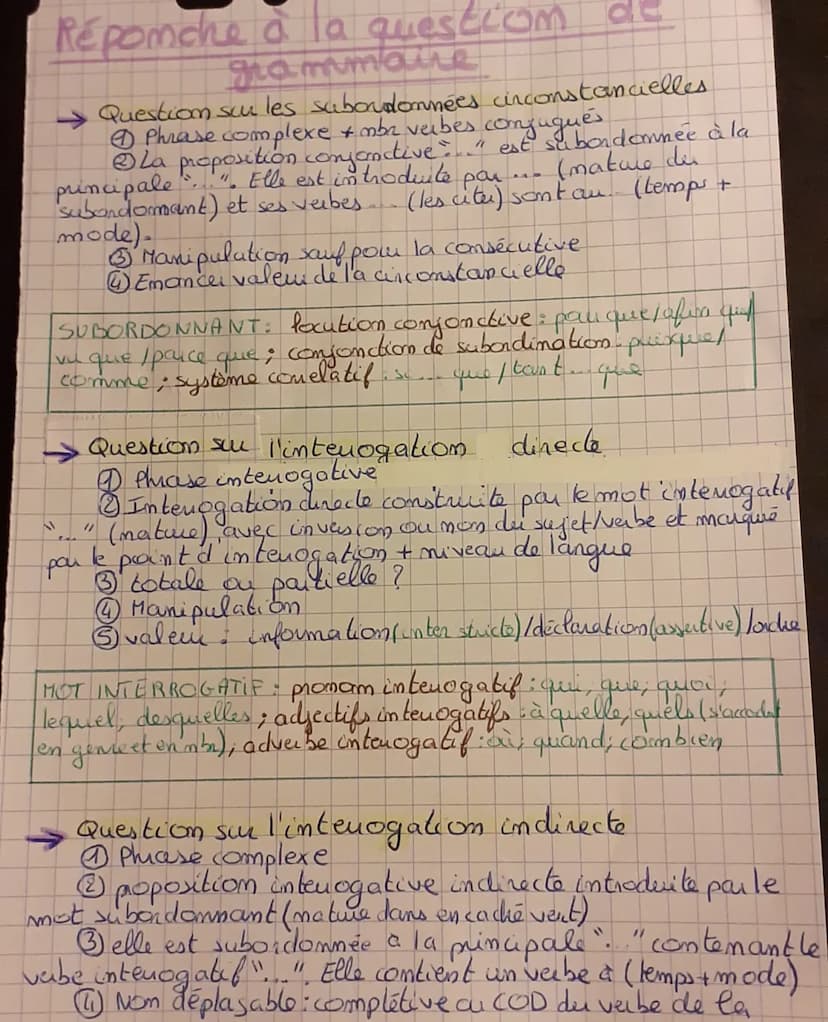 Réponche à la question de
grammaire
→ Question sur les subordonnées circonstancielles
① Phrase complexe + nbr verbes conjugués
② La proposition conjonctive "..." est subordonnée à la
principale "...". Elle est introduite par ... (nature du
subordonnant) et ses verbes ... (les citer) sont au ... (temps +
mode).
③ Manipulation sauf pour la consécutive
④ Enoncer valeur de la circonstancielle
SUBORDONNANT : locution conjonctive : pour que/afin que/
vu que/parce que ; conjonction de subordination : puisque/
comme ; système corrélatif : si ... que/tant ... que
→ Question sur l'interrogation directe
① Phrase interrogative
② Interrogation directe construite par le mot interrogatif
"..." (nature), avec inversion ou non du sujet/verbe et marqué
par le point d'interrogation + niveau de langue
③ totale ou partielle ?
④ Manipulation
⑤ valeur : information (inter stricte)/déclaration (assertive)/ordre
MOT INTERROGATIF : pronom interrogatif : qui, que, quoi,
lequel, desquelles ; adjectifs interrogatifs : à quelle, quels (s'accordent
en genre et en nbr), adverbe interrogatif : où, quand, combien
→ Question sur l'interrogation indirecte
① Phrase complexe
② proposition interrogative indirecte introduite par le
mot subordonnant (nature dans encaché vert)
③ elle est subordonnée à la principale "..." contenant le
verbe interrogatif "...". Elle contient un verbe à (temps + mode)
④ Non déplaçable : complétive ou COD du verbe de la